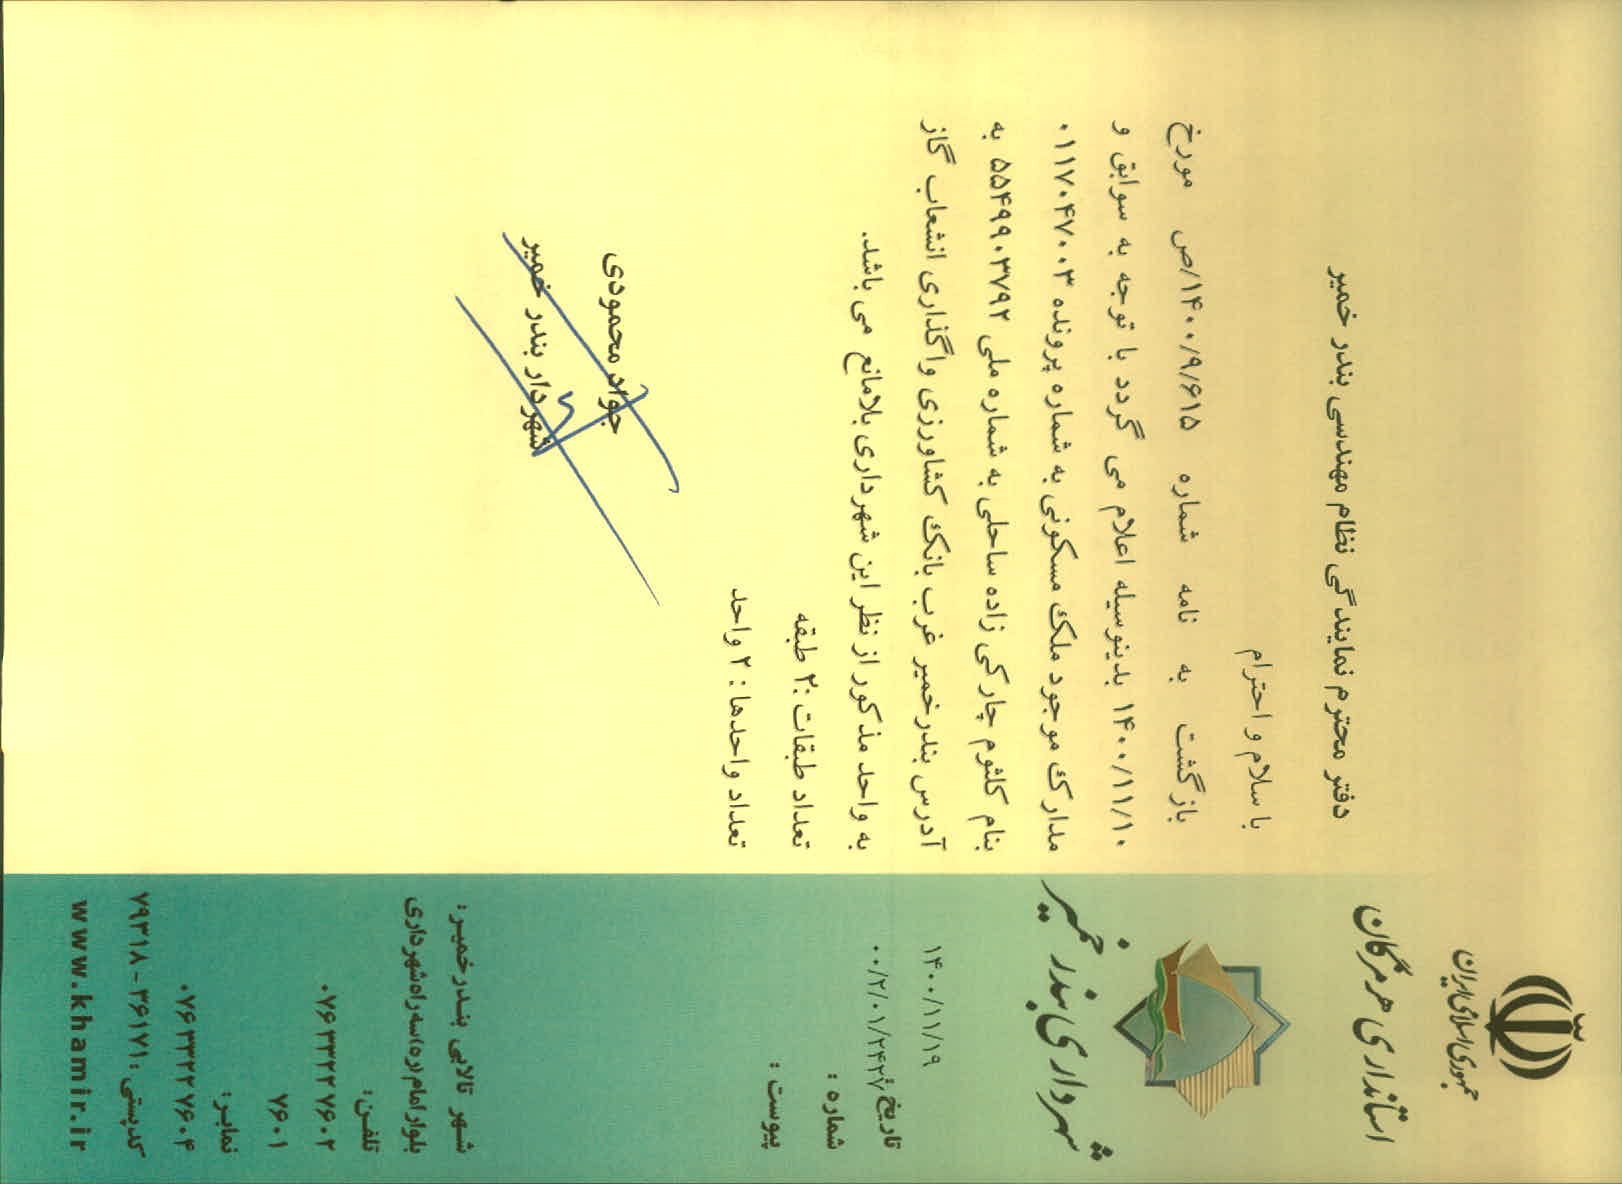 جمهوری اسلامی ایران
استانداری هرمزگان
شهرداری بندر خمیر
۱۴۰۰/۱۱/۱۹
تاریخ: ۰۰/۲/۰۱/۲۴۲۷
شماره :
پیوست :
شهر تالابی بندرخمیر:
بلوار امام(ره)سه راه شهرداری
تلفن:
۰۷۶۳۳۲۲۷۶۰۲
۷۶۰۱
نمابر:
۰۷۶۳۳۲۲۷۶۰۴
کدپستی: ۳۶۱۷۱ - ۷۹۳۱۸
www.khamir.ir
دفتر محترم نمایندگی نظام مهندسی بندر خمیر
با سلام و احترام
بازگشت به نامه شماره ۱۴۰۰/۹/۶۱۵/ص مورخ
۱۴۰۰/۱۱/۱۰ بدینوسیله اعلام می گردد با توجه به سوابق و
مدارک موجود ملک مسکونی به شماره پرونده ۰۱۱۷۰۴۷۰۰۳
بنام کلثوم چارکی زاده ساحلی به شماره ملی ۵۵۴۹۹۰۳۷۹۲ به
آدرس بندرخمیر غرب بانک کشاورزی واگذاری انشعاب گاز
به واحد مذکور از نظر این شهرداری بلامانع می باشد.
تعداد طبقات :۲ طبقه
تعداد واحدها : ۲ واحد
جواد محمودی
شهردار بندر خمیر